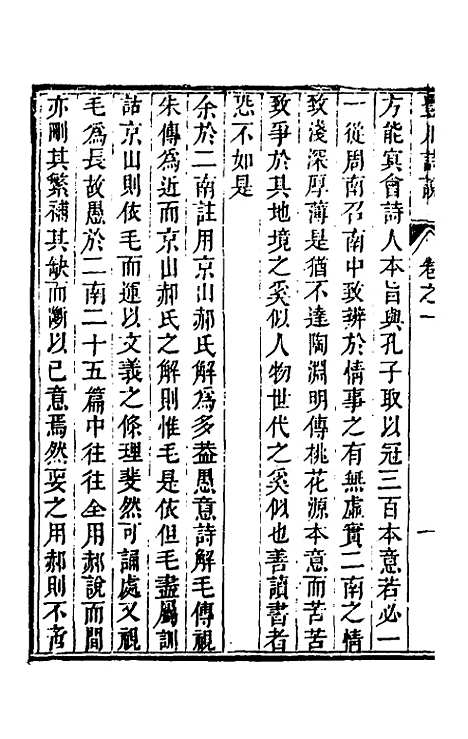 豐川詩說
卷之一
一
方能冥會詩人本旨與孔子取以冠三百本意若必一
一從周南召南中致辨於情事之有無虛實二南之情
致淺深厚薄是猶不達陶淵明傳桃花源本意而苦苦
致爭於其地境之奚似人物世代之奚似也善讀書者
恐不如是
余於二南註用京山郝氏解為多葢愚意詩解毛傳視
朱傳為近而京山郝氏之解則惟毛是依但毛盡屬訓
詁京山則依毛而運以文義之條理斐然可誦處又視
毛為長故愚於二南二十五篇中往往全用郝說而間
亦刪其繁補其缺而漸以己意焉然要之用郝則不啻